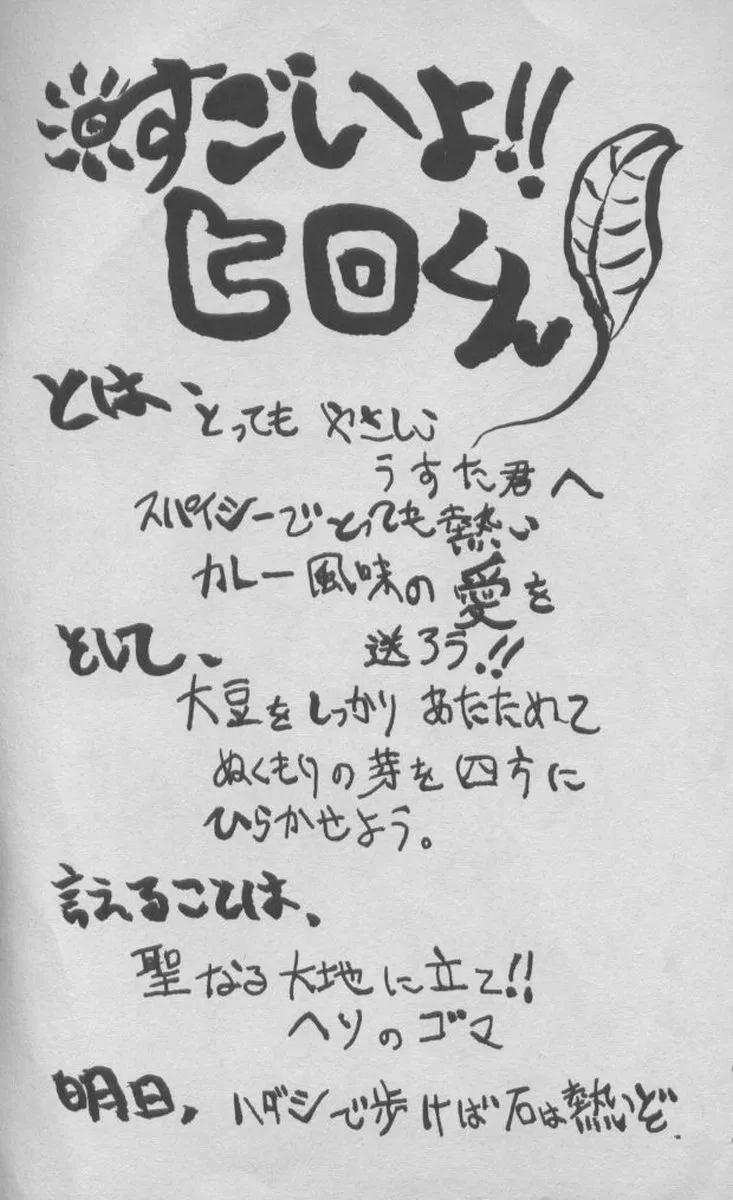 すごいよ!!
ヒロくん
とは、とっても やさしい
うすた君へ
スパイシーでとっても熱い
カレー風味の愛を
送ろう!!
そして、
大豆をしっかり あたためて
ぬくもりの芽を四方に
ひらかせよう。
言えることは、
聖なる大地に立て!!
ヘソのゴマ
明日、ハダシで歩けば石は熱いぞ.